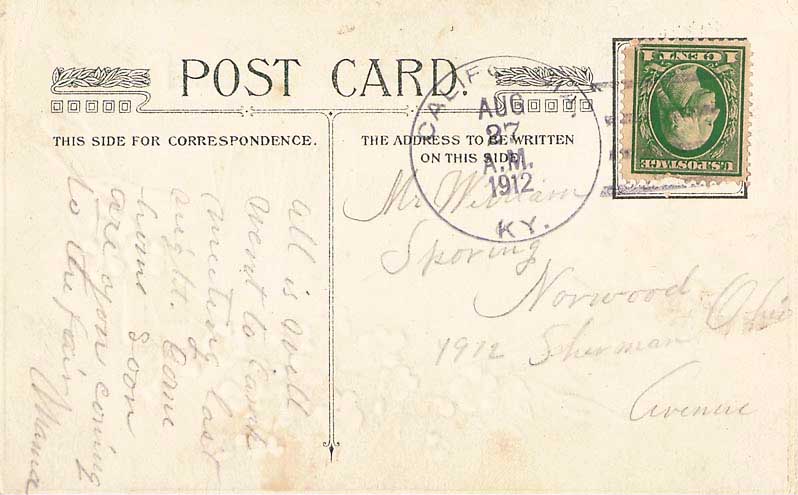 POST CARD.
THIS SIDE FOR CORRESPONDENCE.
THE ADDRESS TO BE WRITTEN
ON THIS SIDE
CALIFO
AUG
27
A.M.
1912
KY.
1 CENT 1
U.S. POSTAGE
Mr William
Sporing
Norwood Ohio
1912 Sherman
Avenue
all is will
went to
meeting last
night. Come
home soon
are you coming
to the fair
Mama